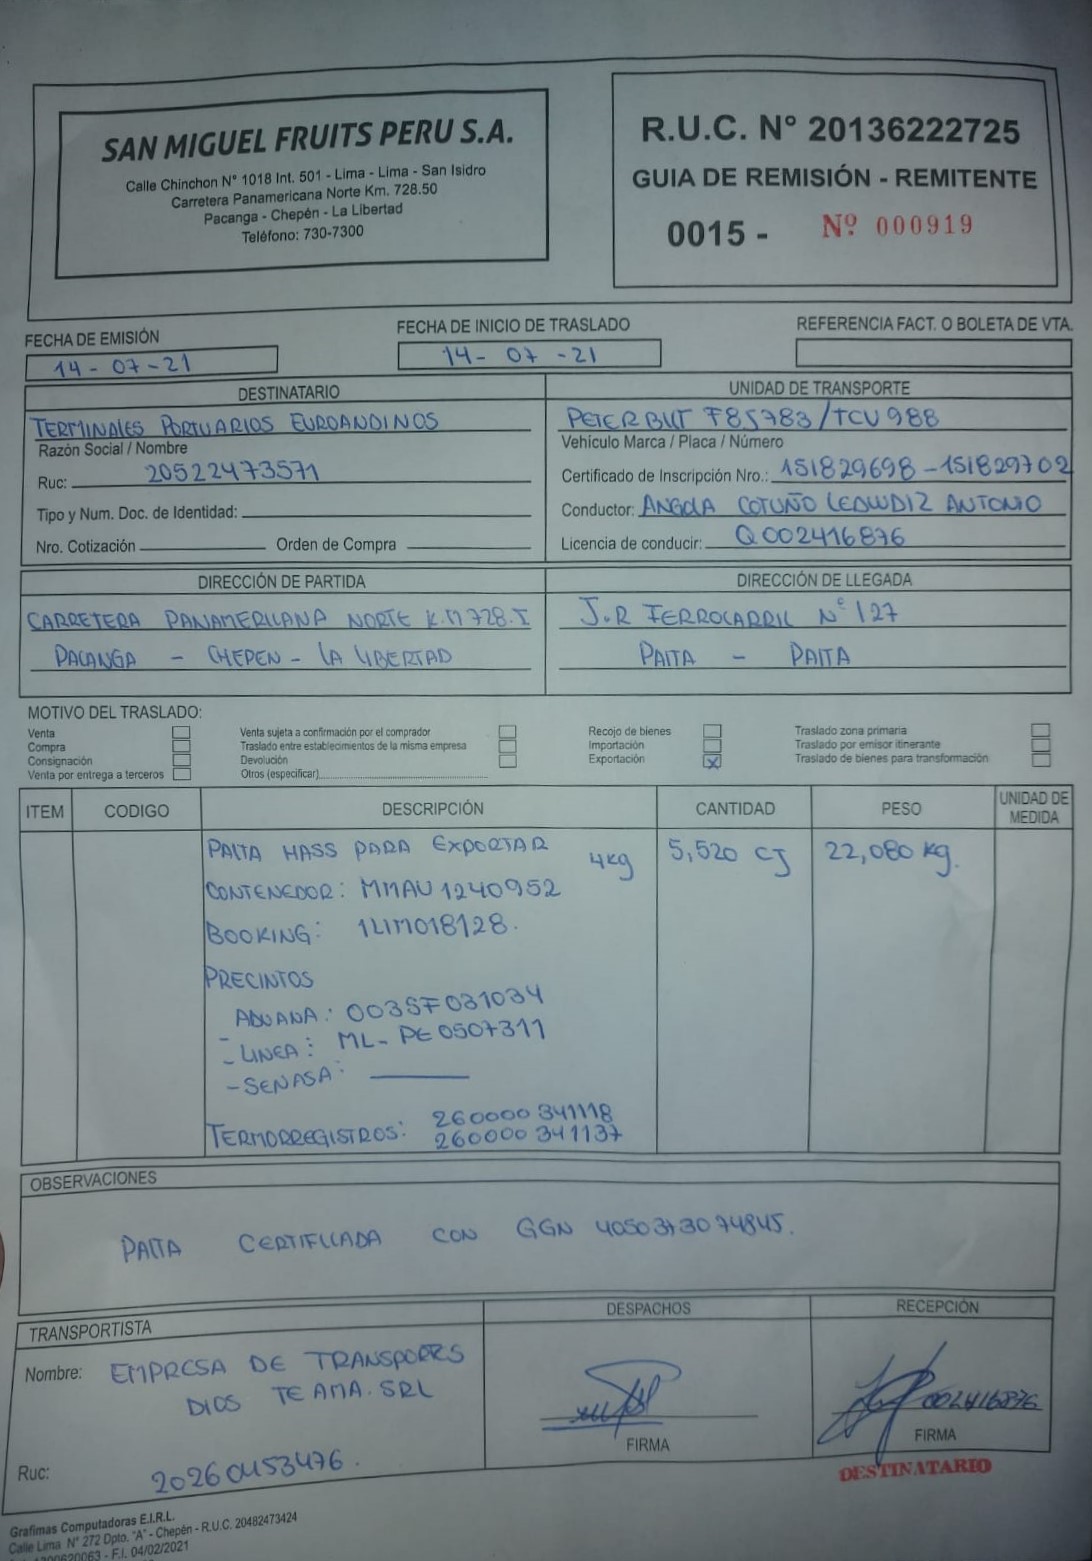 SAN MIGUEL FRUITS PERU S.A.
Calle Chinchon N° 1018 Int. 501 - Lima - Lima - San Isidro
Carretera Panamericana Norte Km. 728.50
Pacanga - Chepén - La Libertad
Teléfono: 730-7300
R.U.C. N° 20136222725
GUIA DE REMISIÓN - REMITENTE
0015 - Nº 000919
FECHA DE EMISIÓN
14 - 07 - 21
FECHA DE INICIO DE TRASLADO
14 - 07 - 21
REFERENCIA FACT. O BOLETA DE VTA.
DESTINATARIO
TERMINALES PORTUARIOS EUROANDINOS
Razón Social / Nombre
Ruc: 20522473571
Tipo y Num. Doc. de Identidad:
Nro. Cotización Orden de Compra
UNIDAD DE TRANSPORTE
PETERBUT F85783/TCU988
Vehículo Marca / Placa / Número
Certificado de Inscripción Nro.: 151829698-151829702
Conductor: ANGOLA COTUÑO LEOWDIZ ANTONIO
Licencia de conducir: Q002416876
DIRECCIÓN DE PARTIDA
CARRETERA PANAMERICANA NORTE K.M 728.5
PACANGA - CHEPEN - LA LIBERTAD
DIRECCIÓN DE LLEGADA
J.R FERROCARRIL N° 127
PAITA - PAITA
MOTIVO DEL TRASLADO:
Venta
Compra
Consignación
Venta por entrega a terceros
Venta sujeta a confirmación por el comprador
Traslado entre establecimientos de la misma empresa
Devolución
Otros (especificar)
Recojo de bienes
Importación
Exportación X
Traslado zona primaria
Traslado por emisor itinerante
Traslado de bienes para transformación
ITEM CODIGO DESCRIPCIÓN CANTIDAD PESO UNIDAD DE MEDIDA
PALTA HASS PARA EXPORTAR 4kg 5,520 CJ 22,080 kg.
CONTENEDOR: MMAU 1240952
BOOKING: 1LIM018128.
PRECINTOS
ADUANA: 003SF031034
- LINEA: ML-PE0507311
- SENASA:
TERMORREGISTROS: 260000341118
260000341137
OBSERVACIONES
PALTA CERTIFICADA CON GGN 4050373074845.
TRANSPORTISTA
Nombre: EMPRESA DE TRANSPORES
DIOS TE AMA. SRL
Ruc: 20260453476.
DESPACHOS
FIRMA
RECEPCIÓN
002416876
FIRMA
DESTINATARIO
Grafimas Computadoras E.I.R.L.
Calle Lima N° 272 Dpto. "A" - Chepén - R.U.C. 20482473424
F.I. 04/02/2021